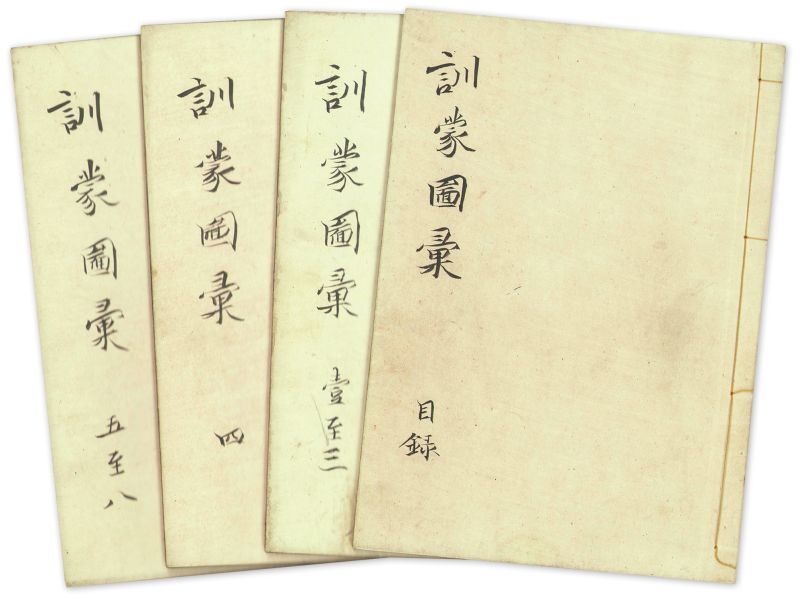 訓蒙圖彙
目録
訓蒙圖彙
壹至三
訓蒙圖彙
四
訓蒙圖彙
五至八